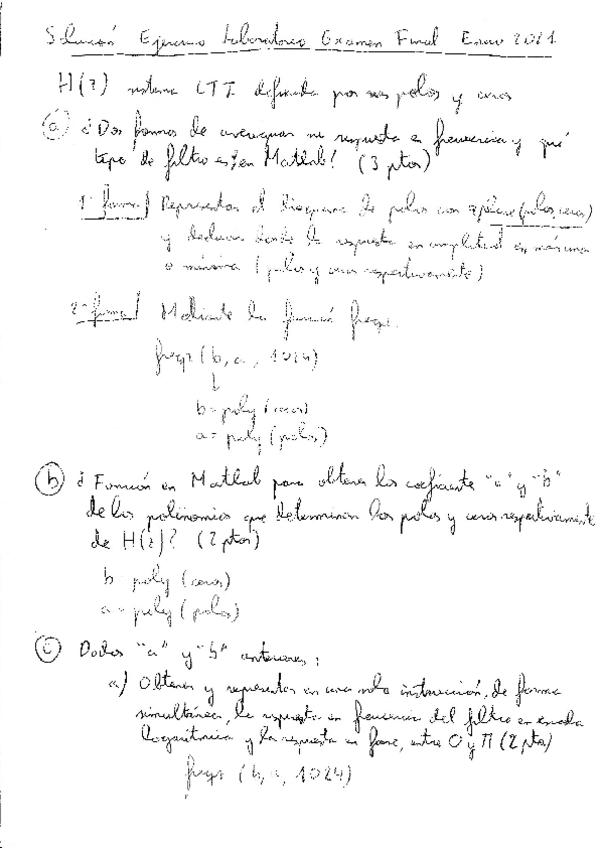 Solución Ejercicio Laboratorio Examen Final Enero 2021
H(z) sistema LTI definida por sus polos y ceros
(a) ¿Dos formas de averiguar su respuesta en frecuencia y qué
tipo de filtro es en Matlab? (3 ptos)
1ª forma) Representar el diagrama de polos con zplane(polos, ceros)
y deducir donde la respuesta en amplitud es máxima
o mínima (polos y ceros respectivamente)
2ª forma) Mediante la función freqz.
freqz (b, a, 1024)
↓
b = poly (ceros)
a = poly (polos)
(b) ¿Función en Matlab para obtener los coeficiente "a" y "b"
de los polinomios que determinan los polos y ceros respectivamente
de H(z)? (2 ptos)
b = poly (ceros)
a = poly (polos)
(c) Dados "a" y "b" anteriores:
a) Obtener y representar en una sola instrucción, de forma
simultánea, la respuesta en frecuencia del filtro en escala
logarítmica y la respuesta en fase, entre 0 y π (2 ptos)
freqz (b, a, 1024)